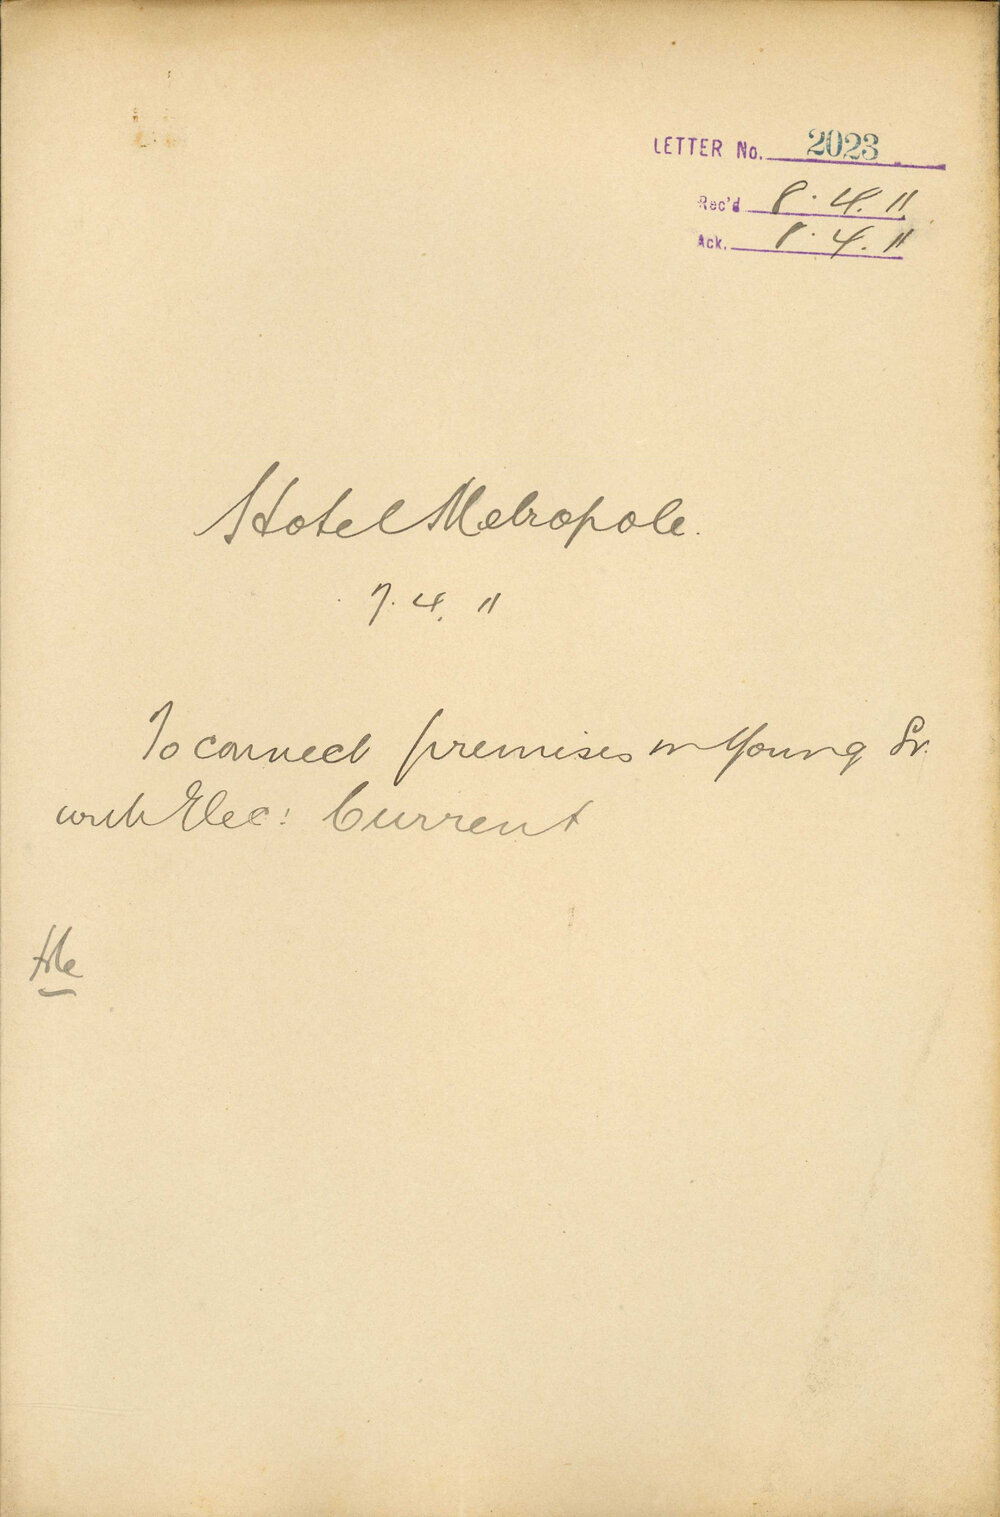 LETTER No. 2023
Rec'd 8. 4. 11
Ack. 8. 4. 11
Hotel Metropole.
7. 4. 11
To connect premises in Young St.
with Elec: Current
file